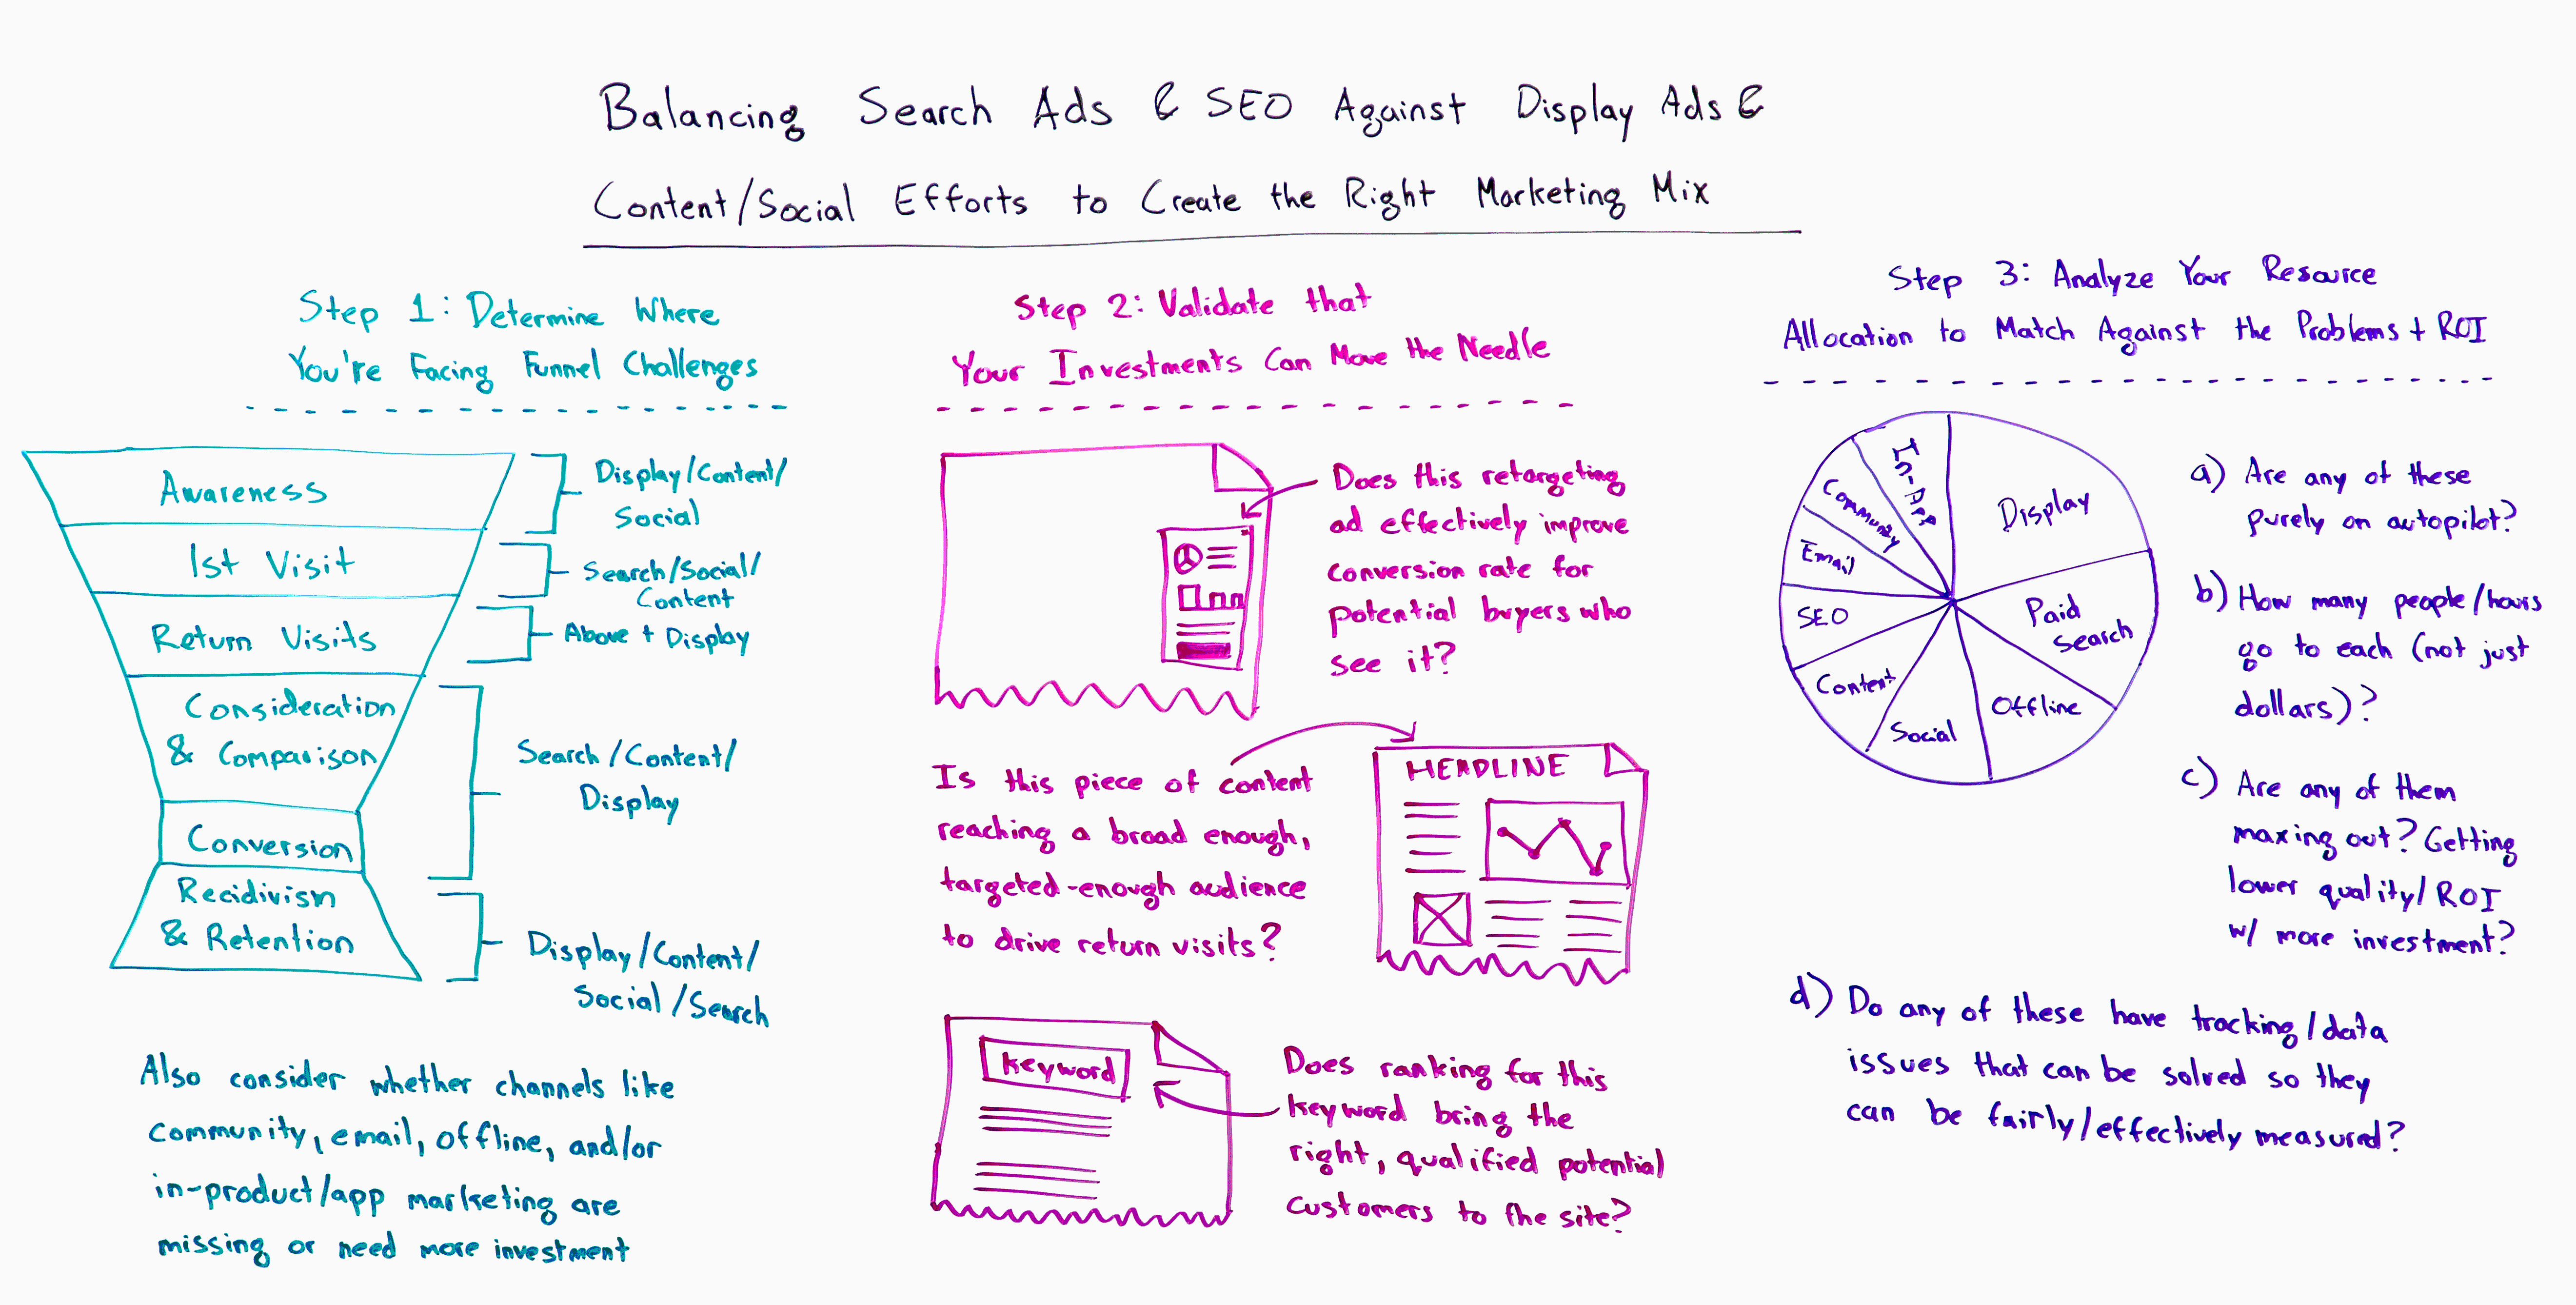 Balancing Search Ads & SEO Against Display Ads &
Content/Social Efforts to Create the Right Marketing Mix
Step 1: Determine Where
You're Facing Funnel Challenges
Awareness
Display/Content/
Social
1st Visit
Search/Social/
Content
Return Visits
Above + Display
Consideration
& Comparison
Search/Content/
Display
Conversion
Recidivism
& Retention
Display/Content/
Social/Search
Also consider whether channels like
community, email, offline, and/or
in-product/app marketing are
missing or need more investment
Step 2: Validate that
Your Investments Can Move the Needle
Does this retargeting
ad effectively improve
conversion rate for
potential buyers who
see it?
Is this piece of content
reaching a broad enough,
targeted-enough audience
to drive return visits?
HEADLINE
keyword
Does ranking for this
keyword bring the
right, qualified potential
customers to the site?
Step 3: Analyze Your Resource
Allocation to Match Against the Problems + ROI
In-App
Community
Email
SEO
Content
Social
Offline
Paid
Search
Display
a) Are any of these
purely on autopilot?
b) How many people/hours
go to each (not just
dollars)?
c) Are any of them
maxing out? Getting
lower quality/ROI
w/ more investment?
d) Do any of these have tracking/data
issues that can be solved so they
can be fairly/effectively measured?